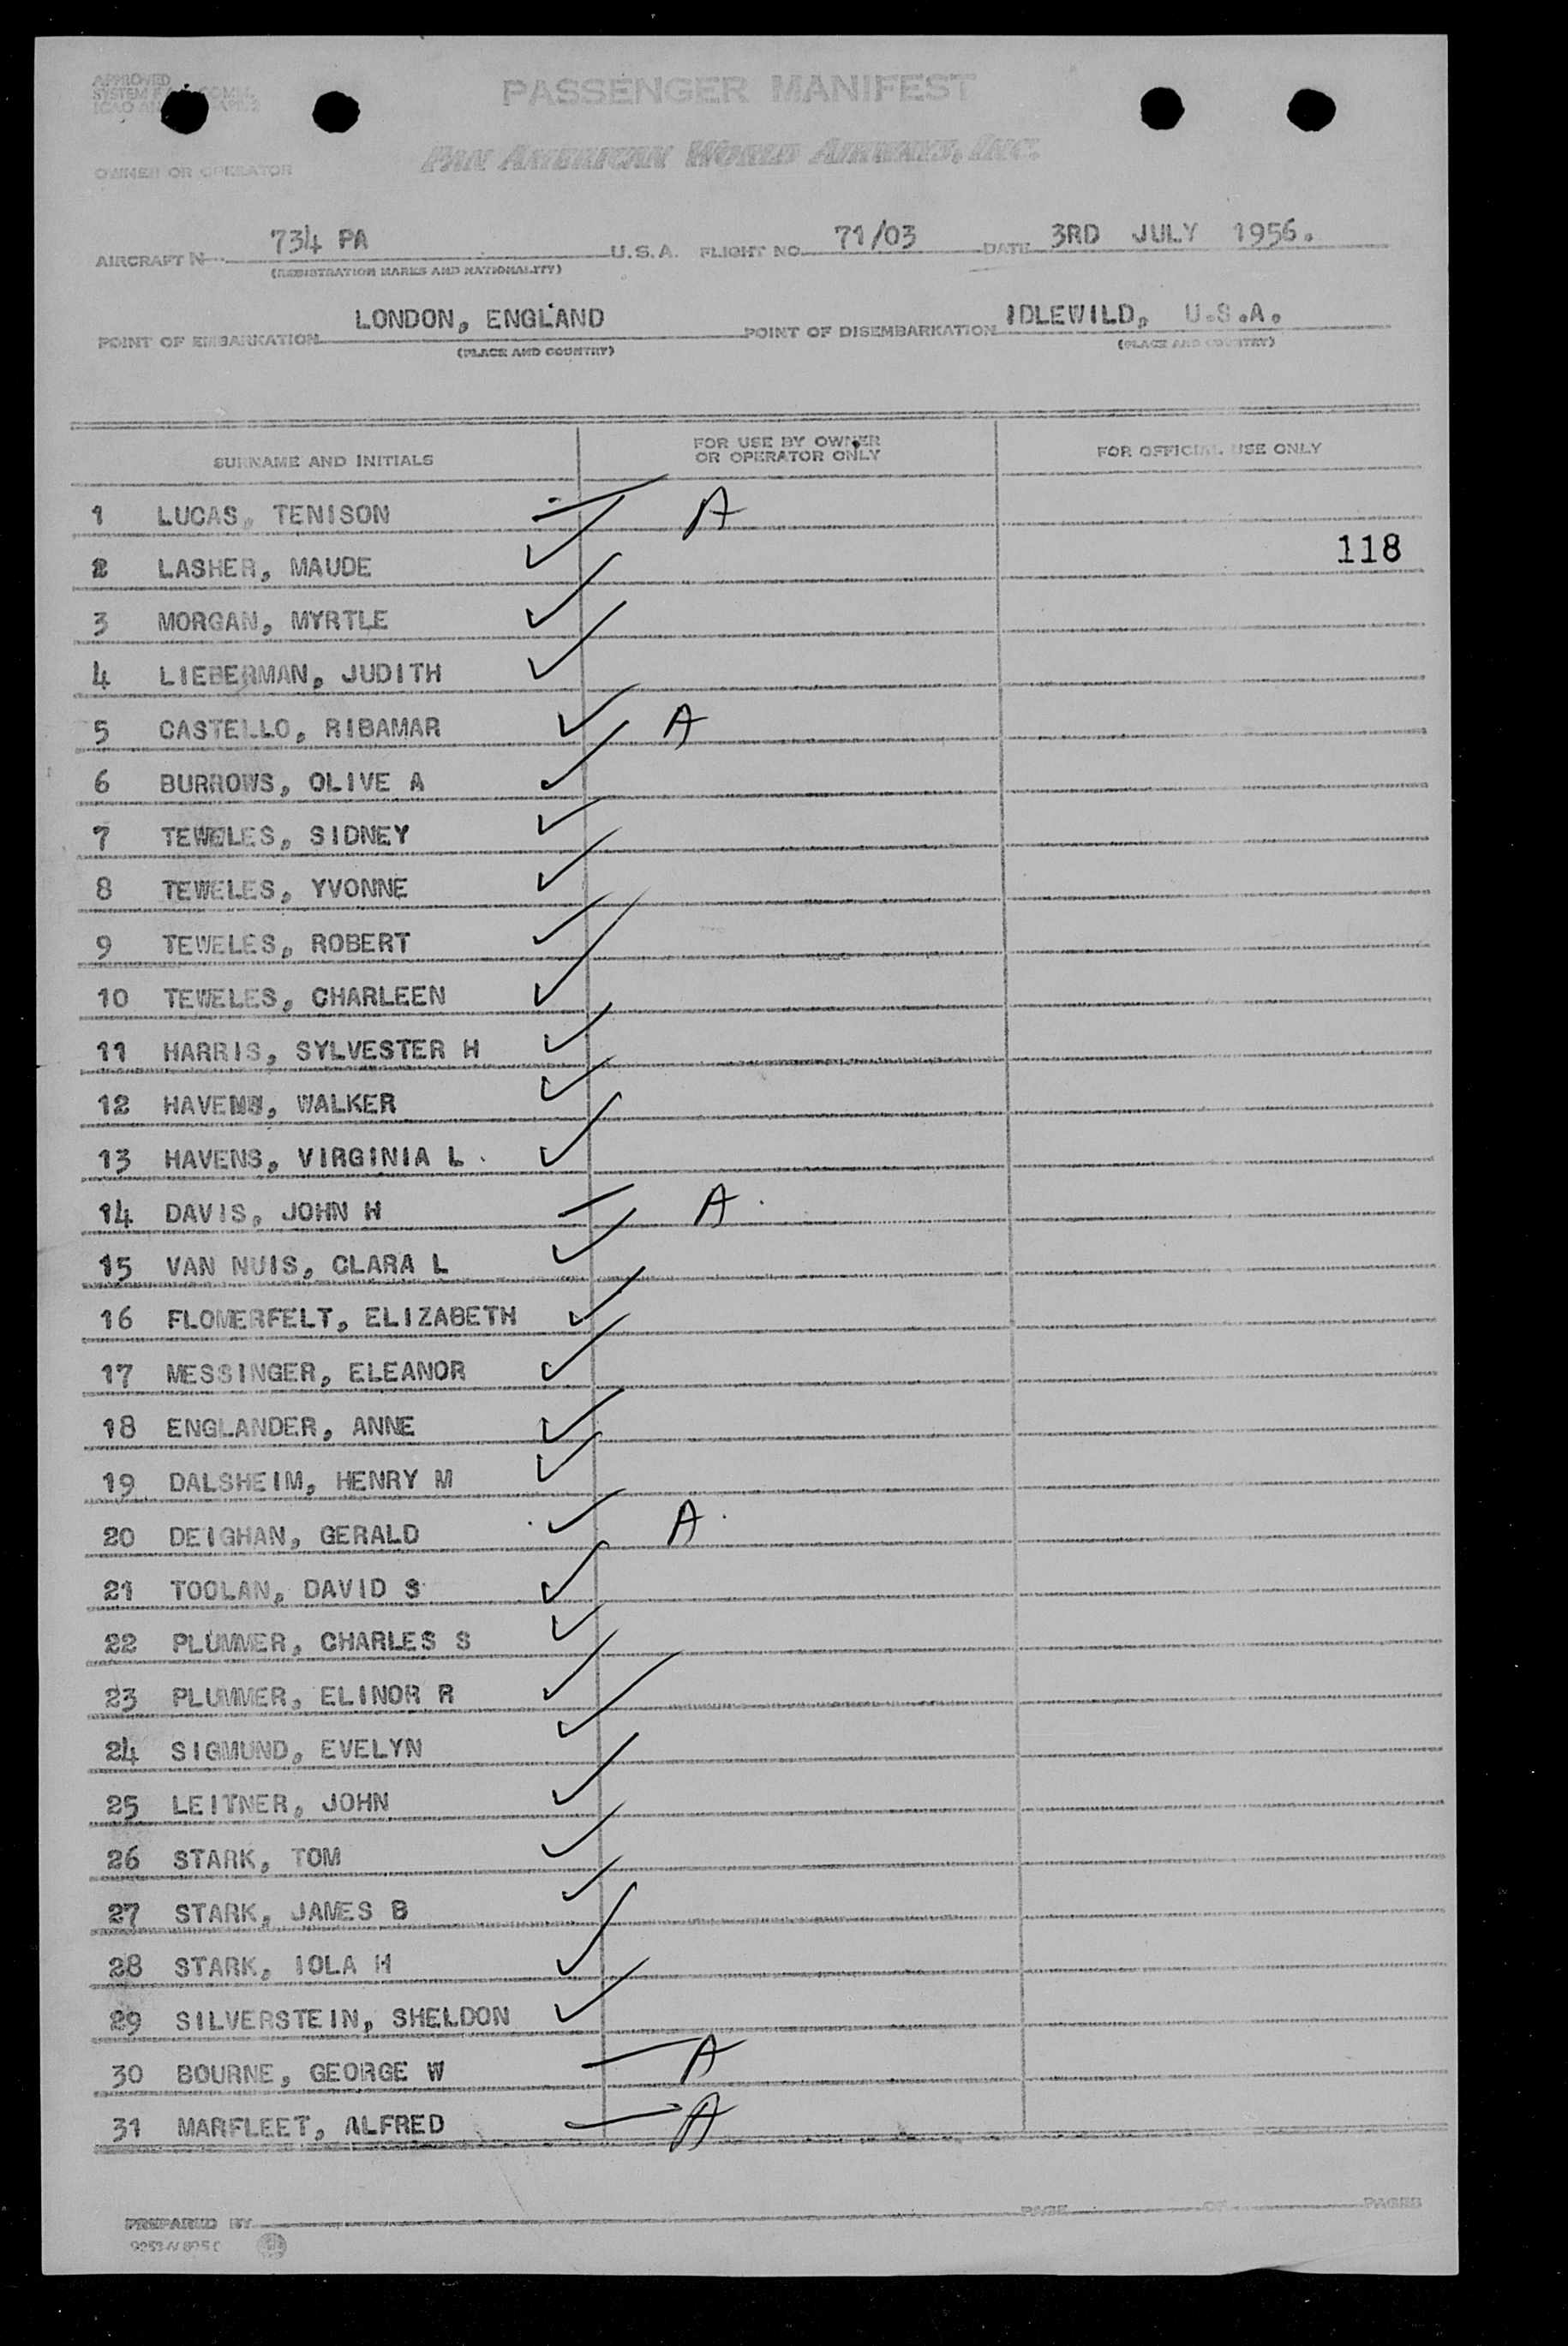 APPROVED
SYSTEM
ICAO
PASSENGER MANIFEST
PAN AMERICAN WORLD AIRWAYS, INC.
OWNER OR OPERATOR
AIRCRAFT N 734 PA U.S.A. FLIGHT NO. 71/03 DATE 3RD JULY 1956.
(REGISTRATION MARKS AND NATIONALITY)
POINT OF EMBARKATION LONDON, ENGLAND POINT OF DISEMBARKATION IDLEWILD, U.S.A.
(PLACE AND COUNTRY) (PLACE AND COUNTRY)
SURNAME AND INITIALS FOR USE BY OWNER OR OPERATOR ONLY FOR OFFICIAL USE ONLY
1 LUCAS, TENISON A
118
2 LASHER, MAUDE ✓
3 MORGAN, MYRTLE ✓
4 LIEBERMAN, JUDITH ✓
5 CASTELLO, RIBAMAR ✓ A
6 BURROWS, OLIVE A ✓
7 TEWELES, SIDNEY ✓
8 TEWELES, YVONNE ✓
9 TEWELES, ROBERT ✓
10 TEWELES, CHARLEEN ✓
11 HARRIS, SYLVESTER H ✓
12 HAVENS, WALKER ✓
13 HAVENS, VIRGINIA L ✓
14 DAVIS, JOHN H — A
15 VAN NUIS, CLARA L ✓
16 FLOMERFELT, ELIZABETH ✓
17 MESSINGER, ELEANOR ✓
18 ENGLANDER, ANNE ✓
19 DALSHEIM, HENRY M ✓
20 DEIGHAN, GERALD ✓ A
21 TOOLAN, DAVID S ✓
22 PLUMMER, CHARLES S ✓
23 PLUMMER, ELINOR R ✓
24 SIGMUND, EVELYN ✓
25 LEITNER, JOHN ✓
26 STARK, TOM ✓
27 STARK, JAMES B ✓
28 STARK, IOLA H ✓
29 SILVERSTEIN, SHELDON ✓
30 BOURNE, GEORGE W — A
31 MARFLEET, ALFRED — A
PREPARED BY PAGE OF PAGES